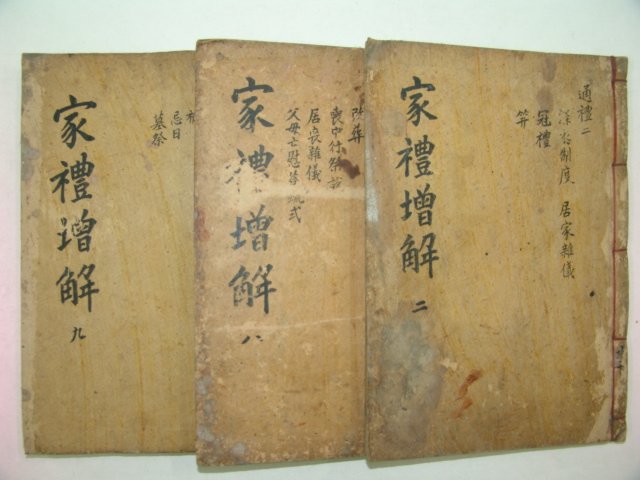 家禮增解
九
忌日
墓祭
家禮增解
八
改葬
居喪雜儀
父母亡慰答疏式
家禮增解
二
通禮二
深衣制度 居家雜儀
冠禮
笄